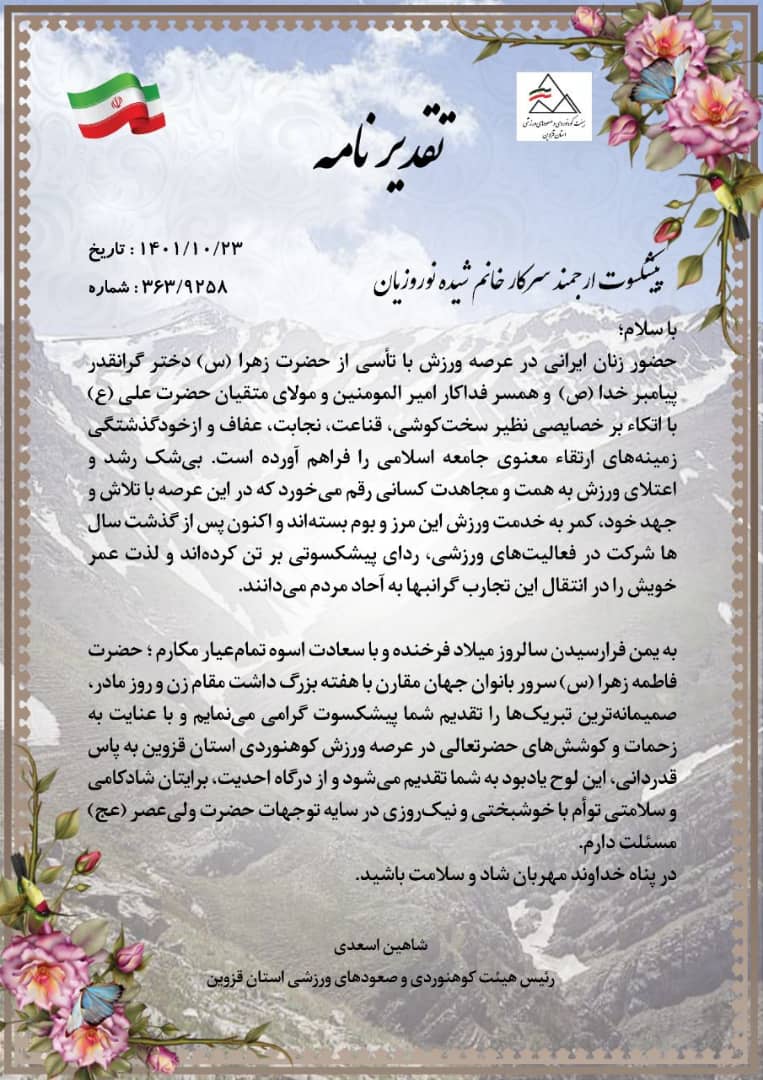 هیئت کوهنوردی و صعودهای ورزشی
استان قزوین
تقدیر نامه
۱۴۰۱/۱۰/۲۳ : تاریخ
۳۶۳/۹۲۵۸ : شماره
پیشکسوت ارجمند سرکار خانم شیده نوروزیان
با سلام؛
حضور زنان ایرانی در عرصه ورزش با تأسی از حضرت زهرا (س) دختر گرانقدر
پیامبر خدا (ص) و همسر فداکار امیر المومنین و مولای متقیان حضرت علی (ع)
با اتکاء بر خصایصی نظیر سخت‌کوشی، قناعت، نجابت، عفاف و ازخودگذشتگی
زمینه‌های ارتقاء معنوی جامعه اسلامی را فراهم آورده است. بی‌شک رشد و
اعتلای ورزش به همت و مجاهدت کسانی رقم می‌خورد که در این عرصه با تلاش و
جهد خود، کمر به خدمت ورزش این مرز و بوم بسته‌اند و اکنون پس از گذشت سال
ها شرکت در فعالیت‌های ورزشی، ردای پیشکسوتی بر تن کرده‌اند و لذت عمر
خویش را در انتقال این تجارب گرانبها به آحاد مردم می‌دانند.
به یمن فرارسیدن سالروز میلاد فرخنده و با سعادت اسوه تمام‌عیار مکارم ؛ حضرت
فاطمه زهرا (س) سرور بانوان جهان مقارن با هفته بزرگ داشت مقام زن و روز مادر،
صمیمانه‌ترین تبریک‌ها را تقدیم شما پیشکسوت گرامی می‌نمایم و با عنایت به
زحمات و کوشش‌های حضرتعالی در عرصه ورزش کوهنوردی استان قزوین به پاس
قدردانی، این لوح یادبود به شما تقدیم می‌شود و از درگاه احدیت، برایتان شادکامی
و سلامتی توأم با خوشبختی و نیک‌روزی در سایه توجهات حضرت ولی‌عصر (عج)
مسئلت دارم.
در پناه خداوند مهربان شاد و سلامت باشید.
شاهین اسعدی
رئیس هیئت کوهنوردی و صعودهای ورزشی استان قزوین